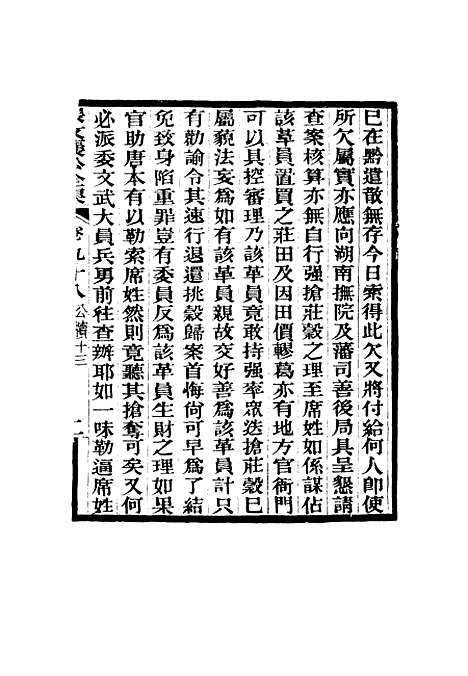 已在黔遣散無存今日索得此欠又將付給何人卽使
所欠屬實亦應向湖南撫院及藩司善後局具呈懇請
查案核算亦無自行强搶莊穀之理至席姓如係謀佔
該革員置買之莊田及因田價轇葛亦有地方官衙門
可以具控審理乃該革員竟敢持强率眾迭搶莊穀已
屬藐法妄爲如有該革員親故交好善爲該革員計只
有勸諭令其速行退還挑穀歸案首悔尙可早爲了結
免致身陷重罪豈有委員反爲該革員生財之理如果
官助唐本有以勒索席姓然則竟聽其搶奪可矣又何
必派委文武大員兵勇前往查辦耶如一味勒逼席姓
卷九十八 公牘十三